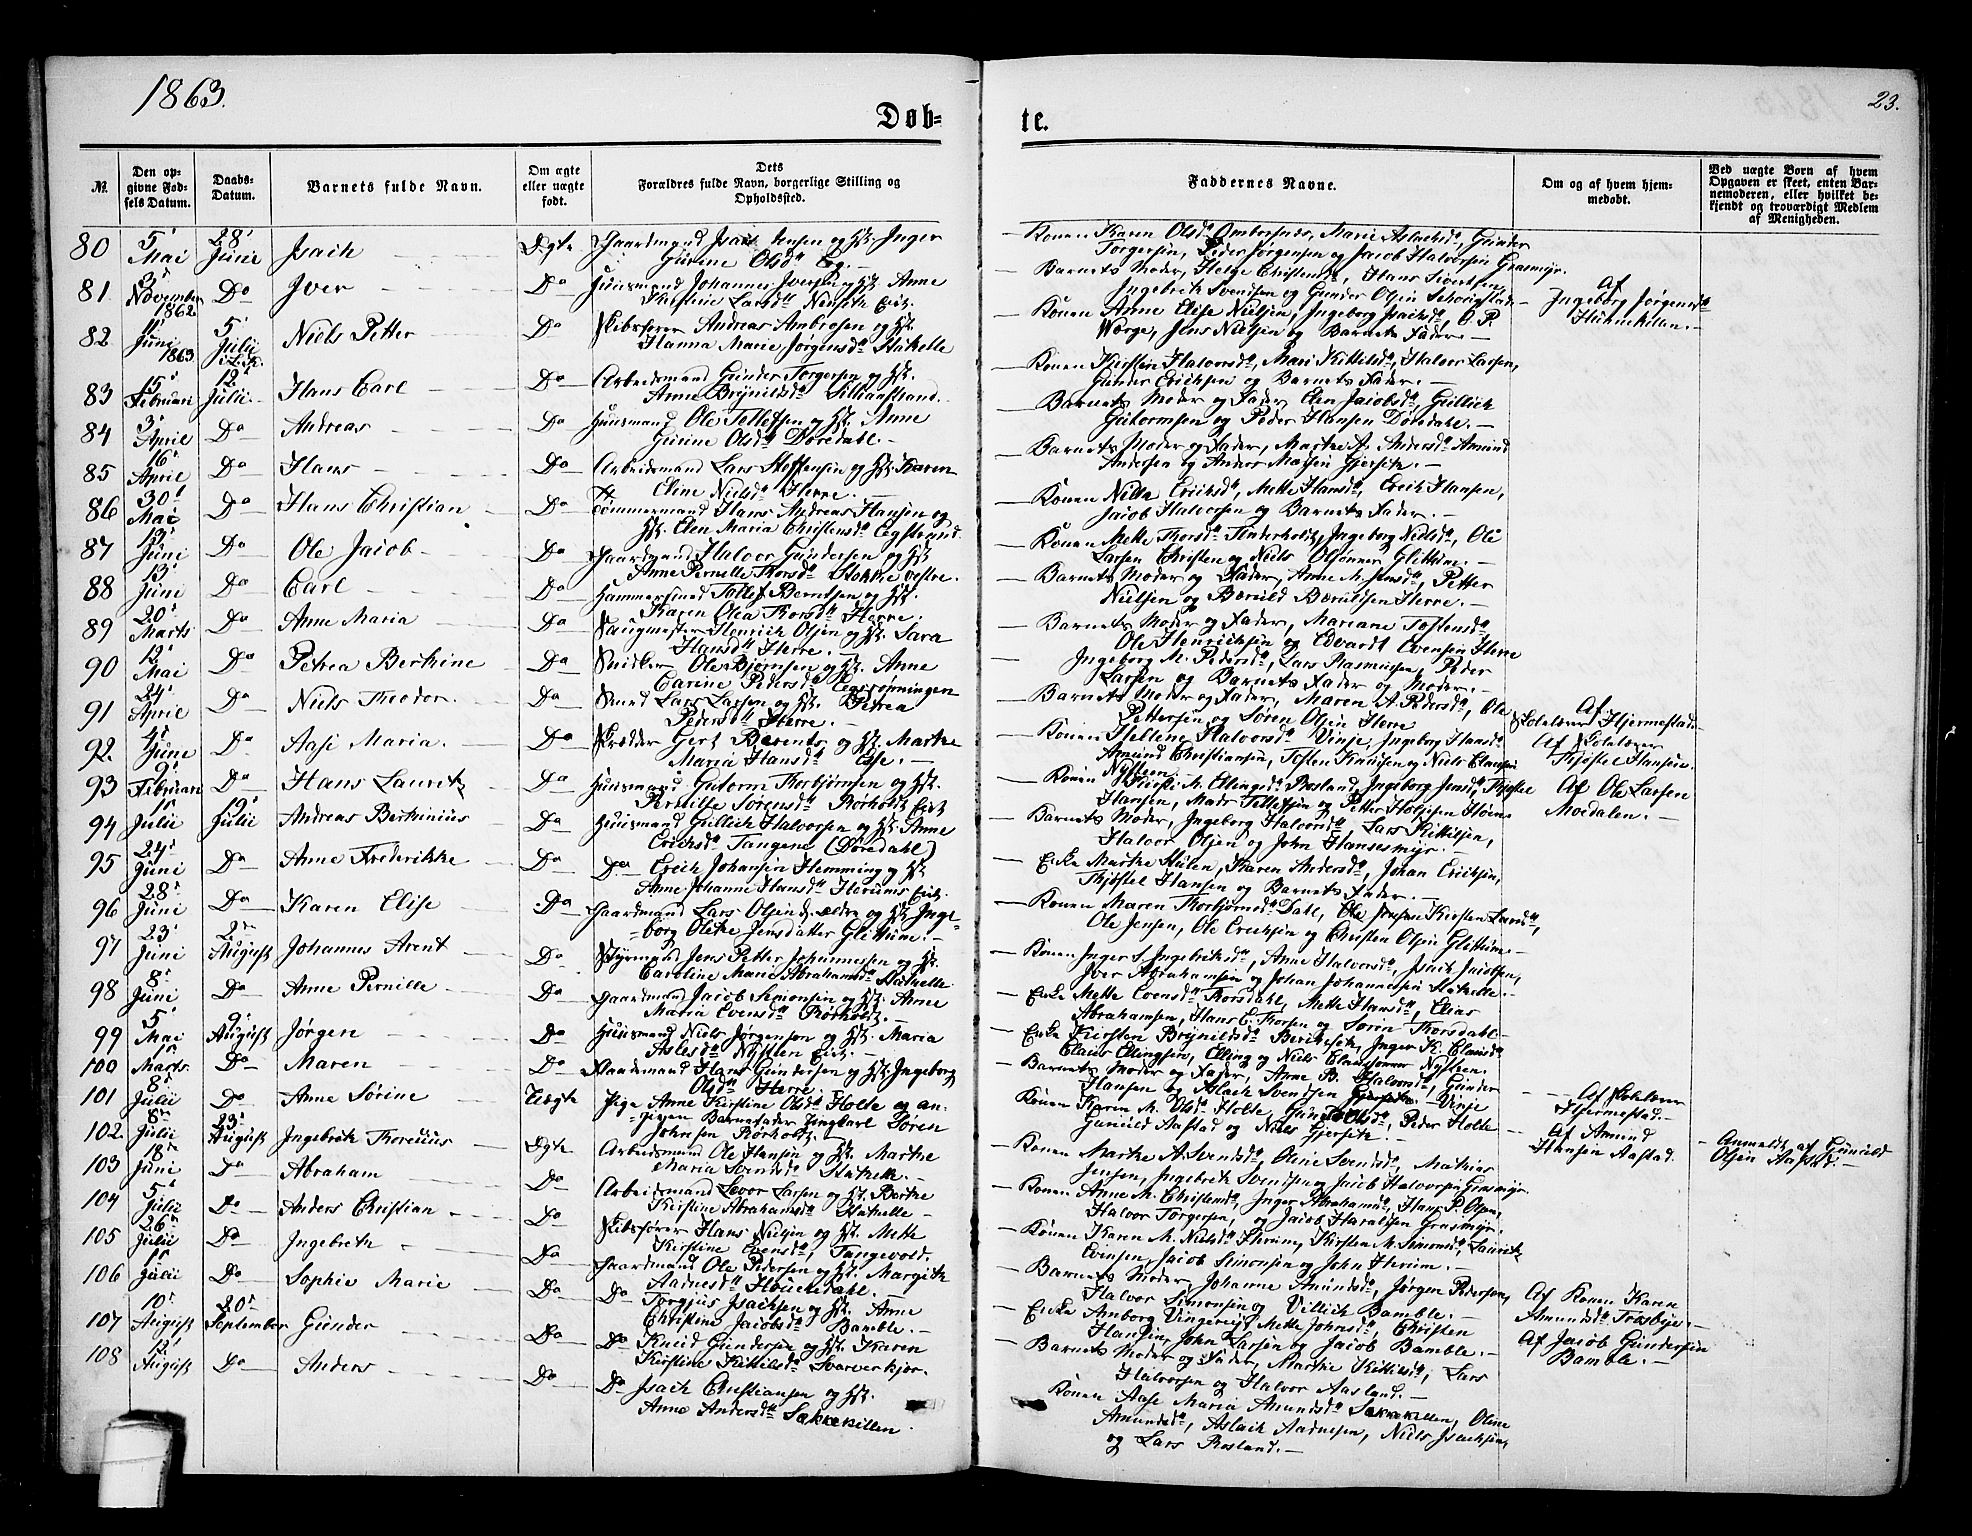 1863.
23.
Døb-
te.
№.
Den op-
givne Fød-
sels Datum.
Daabs-
Datum.
Barnets fulde Navn.
Om ægte
eller uægte
født.
Dets
Forældres fulde Navn, borgerlige Stilling og
Opholdssted.
Faddernes Navne.
Om og af hvem hjem-
medøbt.
Ved uægte Børn af hvem
Opgaven er skeet, enten Bar-
nemoderen, eller hvilket be-
kjendt og troværdigt Medlem
af Menigheden.
80 5' Mai 28' Juni Isach Ægte Gaardmand Isach Jensen og H. Inger
Gurine Olsd. Eeg.
Konen Karen Olsd. Ombersnæs, Marie Aslachsd., Gunder
Torgersen, Peder Jørgensen og Jacob Halvorsen Grasmyr.
81. 3' November 1862 Do Iver Do Huusmand Johannes Iversen og H. Anne
Kirstine Larsd.
Barnets Moder, Helge Christensd., Hans Sivertsen,
Ingebrik Svendsen og Gunder Olsen
Af
Ingeborg Jørgensd.
82. Juni 1863 5' Juli Niels Petter Do Skibsfører Andreas Ambrosen og H.
Hanna Marie Jørgensd. Stathelle
Konen Anne Elise Nielsen, Ingeborg Isachsd., O. P.
Wærge, Jens Nielsen og Barnets Fader.
83 15' Februari 12' Juli Hans Carl Do Arbeidsmand Gunder Torgersen og H.
Anne Brynildsd.
Konen Kirsten Halvorsd., Mari Kittilsd., Halvor Larsen,
Gunder Erichsen og Barnets Fader.
84 3' April Do Andreas Do Huusmand Ole Tollefsen og H. Anne
Gurine Olsd. Dørdahl.
Barnets Moder og Fader, Elen Jacobsd., Gullich
Gutormsen og Peder Hansen Dørdahl.
85 16' April Do Hans Do Arbeidsmand Lars Steffensen og H. Karen
Eline Nielsd. Herre.
Barnets Moder og Fader, Marthe A. Andersd. Amund
Andersen og Anders Matsen Gjersett.
86 30' Mai Do Hans Christian Do Tømmermand Hans Andreas Hansen og
H. Elen Maria Christensd. Eegstrand
Konen Nille Erichsd., Mette Hansd., Erich Hansen,
Jacob Halvorsen og Barnets Fader.
87 Juni Do Ole Jacob Do Gaardmand Halvor Gundersen og H.
Anne Pernille Thorsd. Stokke vestre.
Konen Mette Thorsd. Tinderholt, Ingeborg Nielsd., Ole
Larsen Christen og Niels Olsønner Glittum.
88 13' Juni Do Carl Do Hammersmed Tollef Berntsen og H.
Karen Olea Thorsd. Herre.
Barnets Moder og Fader, Anne M. Jensd., Petter
Nielsen og Bæruld Bæruldsen Herre.
89 20' Marts Do Anne Maria Do Saugmester Henrich Olsen og H. Sara
Hansd. Herre.
Barnets Moder og Fader, Mariane Tostensd.
Ole Henrichsen og Edvardt Evensen Herre
90 12' Mai Do Petrea Berthine Do Snidker Ole Bjørnsen og H. Anne
Carine Pedersd.
Ingeborg M. Pedersd., Lars Rasmussen, Peder
Larsen og Barnets Fader og Moder.
91 24' April Do Niels Theodor Do Smed Lars Larsen og H. Petrea
Pedersd. Herre.
Barnets Moder og Fader, Maren A. Pedersd., Ole
Pettersen og Søren Olsen Herre
Af
Skolelærer Hjermestad.
92. 4' Juni Do Aase Maria. Do Skrædder Gert Bærents. og H. Marthe
Maria Hansd.
Konen Halvorsd. Vinje, Ingeborg Hansd.
Amund Christiansen, Tosten Knudsen og Niels Clausen
Nysteen
Af Skolelærer
Thjøstel Hansen.
93 9' Februari Do Hans Laurits Do Huusmand Gutorm Thorbjørnsen og H.
Pernille Sørensd. Rørholt Eiet.
Konen Kirsti M. Ellingsd. Rosland, Ingeborg Jensd., Thjøstel
Hansen, Mads Tollefsen og Petter
Af Ole Larsen
Moedalen.
94 15' Juli 19' Juli Andreas Berthinius Do Huusmand Gullich Halvorsen og H. Anne
Erichsd. Tangene (Dørdahl)
Barnets Moder, Ingeborg Halvorsd., Lars Kittilsen,
Halvor Olsen og John Hansesmyr.
95 24' Juni Do Anne Frederikke Do Do Erich Johansen Hemming og H.
Anne Johanne Hansd. Herums Eiet.
Enke Marthe Hulen, Karen Andersd., Johan Erichsen,
Thjøstel Hansen og Barnets Fader.
96 28' Juni Do Karen Elise Do Gaardmand Lars Olsen d. ældre og H. Inge-
borg Olette Jensdatter Glittum.
Konen Maren Thorbjørnsd. Dahl, Kirsten Larsd.,
Ole Jensen, Ole Erichsen og Christen Olsen Glittum.
97 23' Juni 2' August Johannes Arent Do Styrmand Jens Petter Johannessen og H.
Caroline Marie Abrahamsd. Stathelle
Konen Inger S. Ingebrichsd., Anne Halvorsd., Isach Jacobsen,
Iver Abrahamsen og Johan Johannesen Stathelle.
98 8' Juni Do Anne Pernille Do Gaardmand Jacob Simonsen og H. Anne
Maria Evensd. Rørholt.
Enke Mette Evensd. Thorsdahl, Mette Hansd., Elias
Abrahamsen, Hans C. Thorsen og Søren Thorsdahl.
99 5' Mai 9' August Jørgen Do Huusmand Niels Jørgensen og H. Maria
Aslesd. Nysteen Eiet.
Enke Kirsten Brynildsd. Inger K. Clausd.
Claus Ellingsen, Elling og Niels Clausønner Nysteen.
100 Marts Do Maren Do Hans Gundersen og H. Ingeborg
Olsd. Herre.
Barnets Moder og Fader, Anne B. Halvorsd., Gunder
Hansen og Aslach Svendsen Vinje
Af Skolelærer
Hjermestad.
101 8' Juli Do Anne Sørine Uægte Pige Anne Kirstine Olsd. Holte og an-
given Barnefader Ungkarl Søren
Johnsen Rørholt.
Konen Karen M. Olsd. Holte, Peder Holte
Gunuld Aastad og Niels Gjersett.
Af Amund
Hansen Aastad.
Anmeldt af Gunuld
Olsen Aastad.
102. 8' Juli 23' August Ingebreth Thorenius Ægte Arbeidsmand Ole Hansen og H. Marthe
Maria Svensd. Stathelle.
Konen Marthe A. Svendsd., Oline Svendsd., Mathias
Jensen, Ingebreth Svendsen og Jacob Halvorsen Grasmyr.
103 18' Juni Do Abraham Do Arbeidsmand Levor Larsen og H. Berthe
Kirstine Abrahamsd. Stathelle
Konen Anne M. Christensd., Inger Abrahamsd., Hans P. Olsen,
Halvor Torgersen, og Jacob Haraldsen Grasmyr.
104 5' Juli Do Anders Christian Do Skibsfører Hans Nielsen og H. Mette
Kirstine Evensd., Tangevold.
Konen Karen M. Nielsd. Herum, Kirsten M. Simonsd., Laurits
Evensen, Jacob Simonsen og John Herum.
105 26' Juli Do Ingebreth Do Gaardmand Ole Pedersen og H. Margith
Aadnesd.
Barnets Moder, Johanne Amundsd., Jørgen Pedersen,
Halvor Simonsen og Villich Bamble.
106 Juli Do Sophie Marie Do Do Torgjus Isachsen og H. Anne
Christine Jacobsd. Bamble.
Enke Amborg Vingereid, Mette Johnsd., Christen
Hansen, John Larsen og Jacob Bamble.
Af Konen Karen
Amundsd. Trosbye.
Af Jacob Gundersen
Bamble.
107 10' August 20' September Gunder Do Do Knud Gundersen og H. Karen
Kirstine Kittilsd.
Barnets Moder og Fader, Marthe Kittilsd., Lars
Halvorsen og Halvor Aasland.
108 August Do Anders Do Do Isach Christiansen og H.
Anne Andersd. Sækkekillen.
Konen Aase Maria Amundsd. Sækkekillen, Oline
Amundsd., Aslach Aadnesen, Niels Isachsen,
og Lars Rosland.